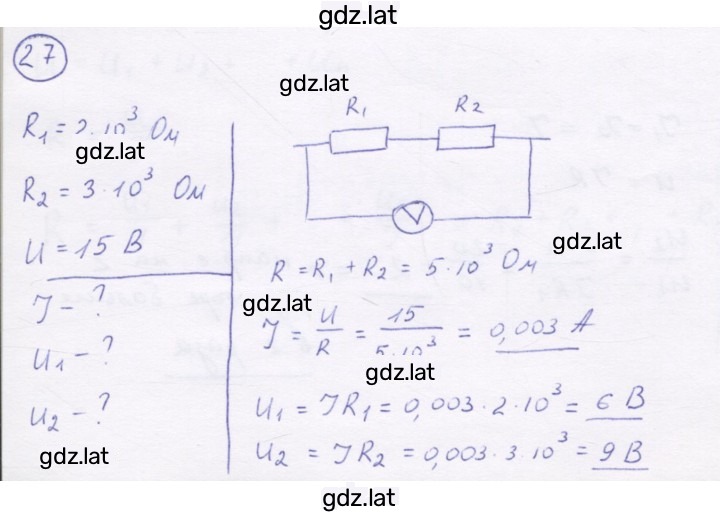 gdz.lat
27
gdz.lat
R₁ = 2·10³ Ом
gdz.lat
R₂ = 3·10³ Ом
U = 15 В
J - ?
U₁ - ?
U₂ - ?
gdz.lat
R₁ R₂
V
gdz.lat
R = R₁ + R₂ = 5·10³ Ом
gdz.lat
J = U/R = 15/5·10³ = 0,003 А
gdz.lat
U₁ = JR₁ = 0,003·2·10³ = 6 В
U₂ = JR₂ = 0,003·3·10³ = 9 В
gdz.lat